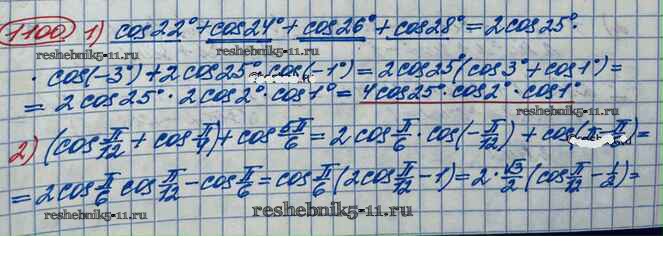 1100 1) cos22° + cos24° + cos26° + cos28° = 2cos25° ·
reshebnik5-11.ru
· cos(-3°) + 2cos25° cos(-1°) = 2cos25°(cos3° + cos1°) =
= 2cos25° · 2cos2° · cos1° = 4cos25° · cos2° · cos1°
reshebnik5-11.ru
2) (cos π/12 + cos π/4) + cos 5π/6 = 2cos π/6 · cos(-π/12) + cos(π - π/6) =
= 2cos π/6 cos π/12 - cos π/6 = cos π/6 (2cos π/12 - 1) = 2 · √3/2 (cos π/12 - 1/2) =
reshebnik5-11.ru
reshebnik5-11.ru